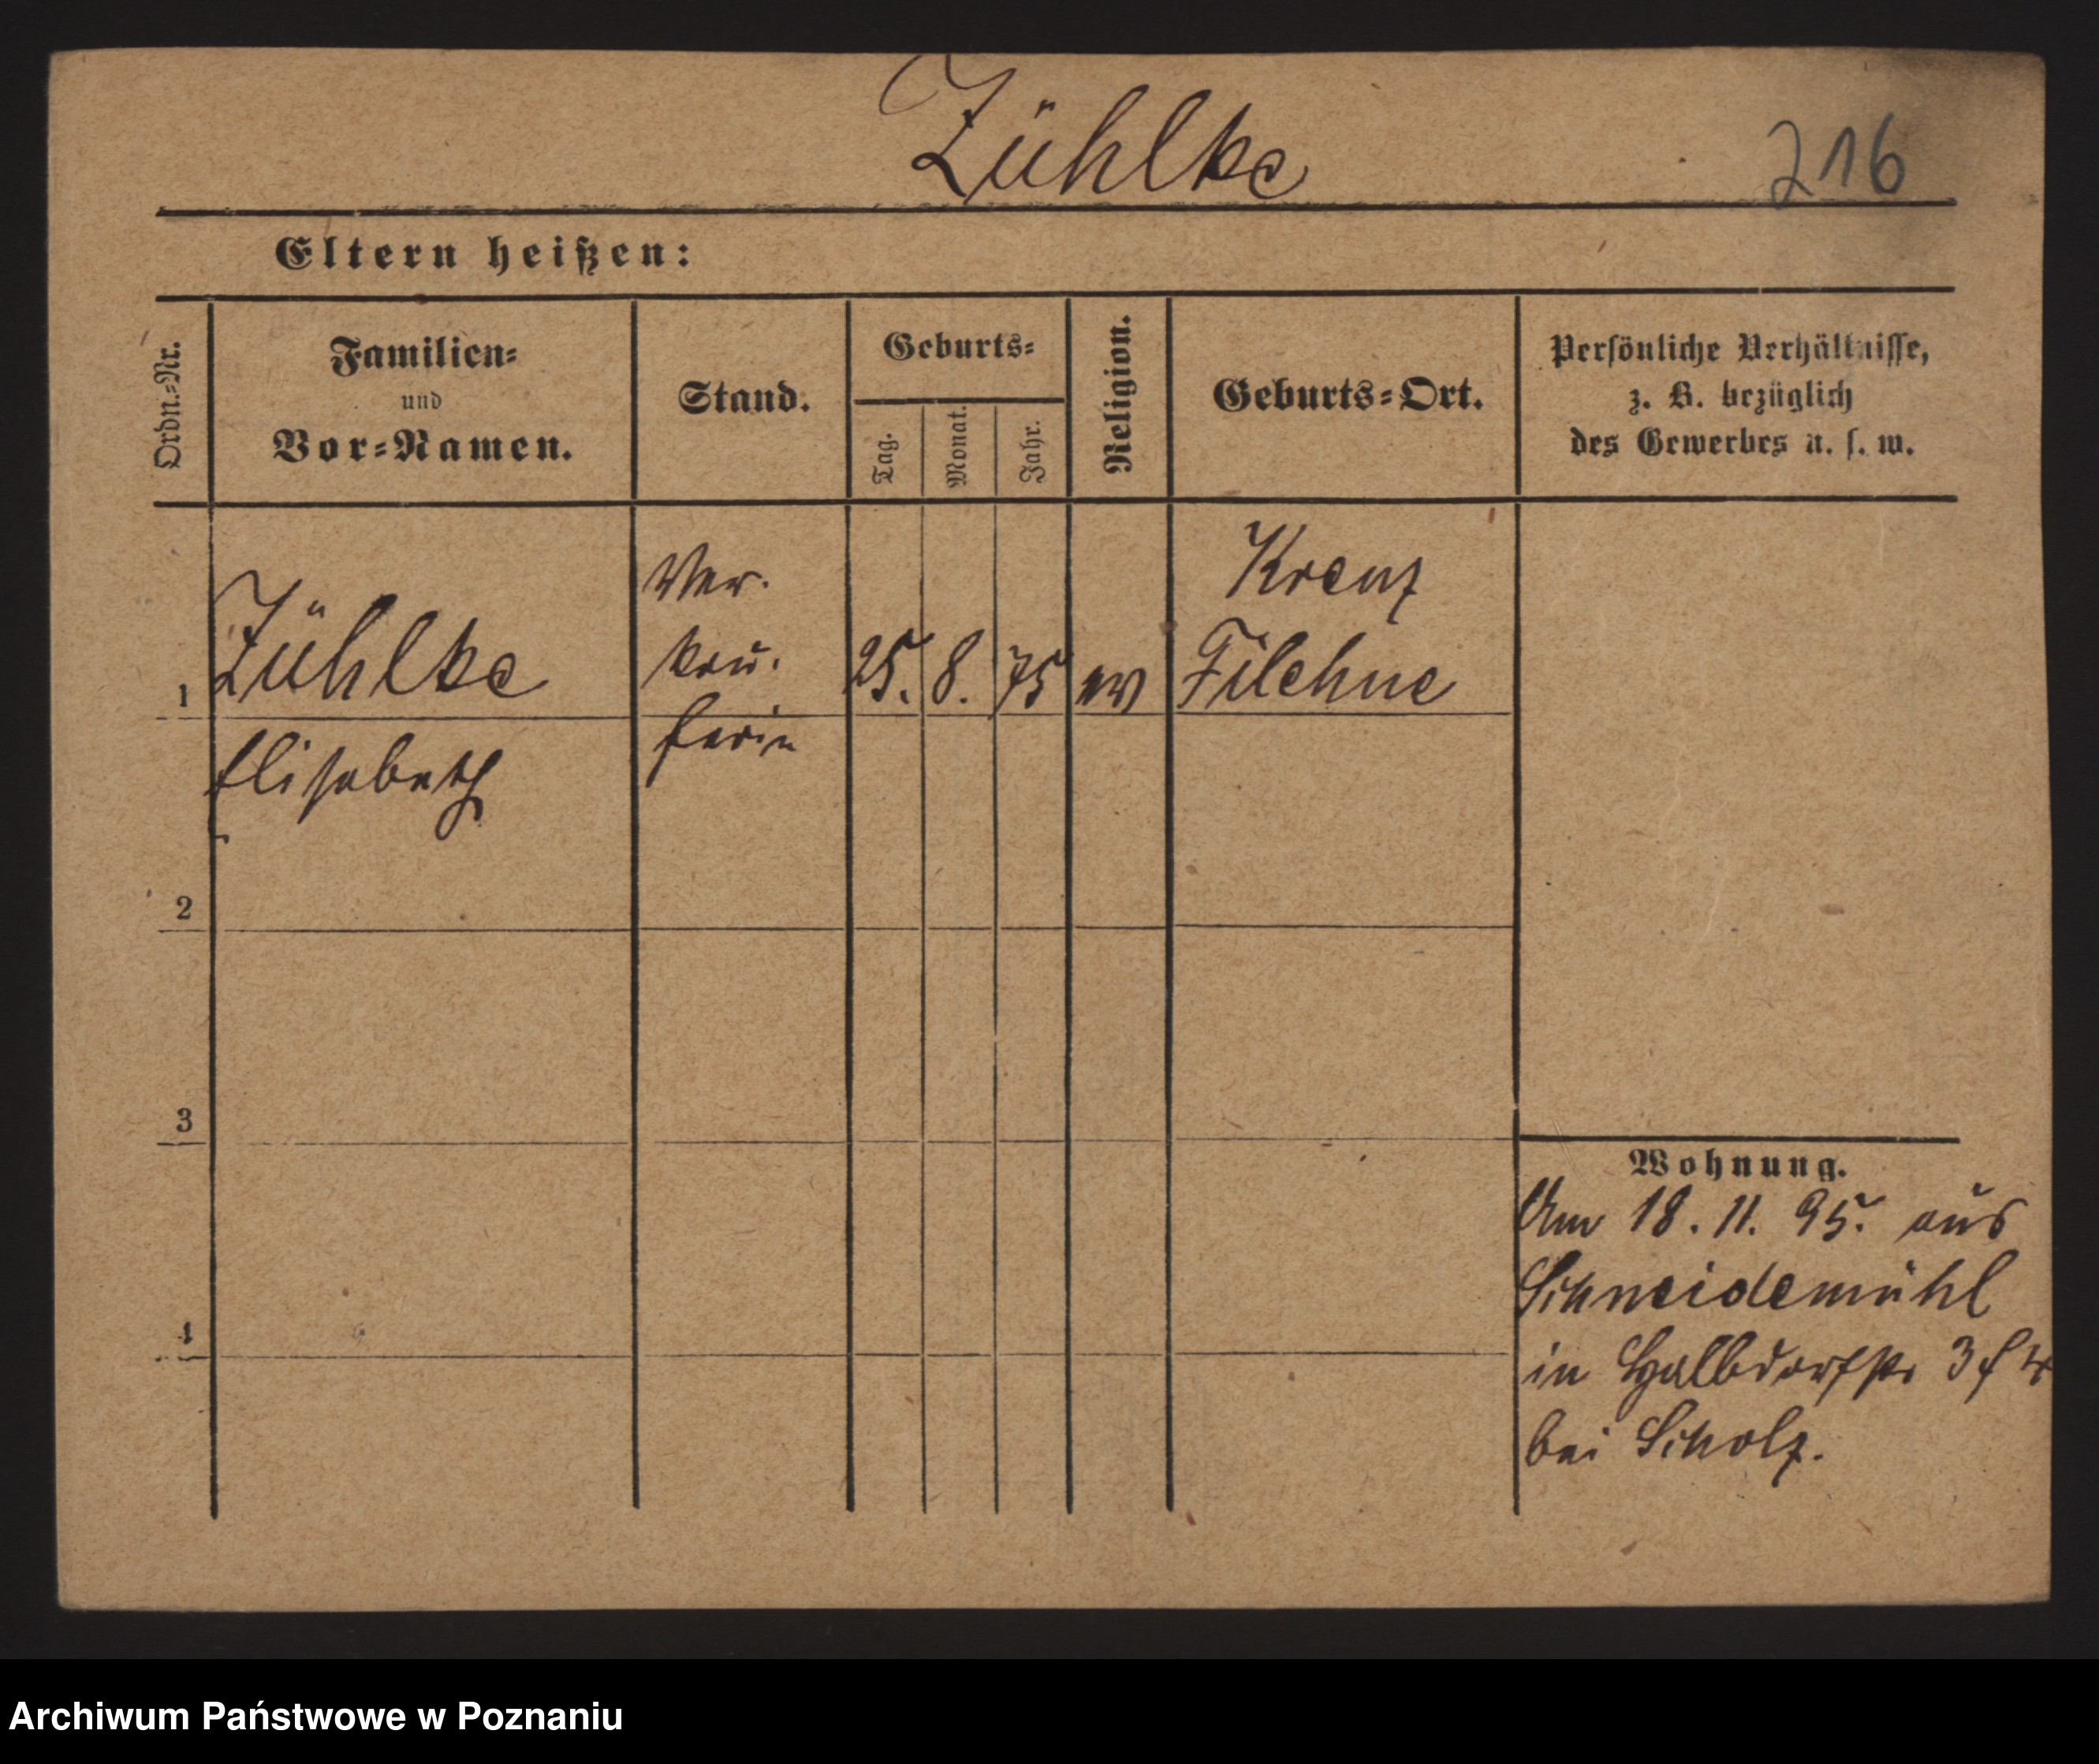 Zühlke
216
Eltern heißen:
Ordn.-Nr.
Familien-
und
Vor-Namen.
Stand.
Geburts-
Tag.
Monat.
Jahr.
Religion.
Geburts-Ort.
Persönliche Verhältnisse,
z. B. bezüglich
des Gewerbes u. s. w.
1
Zühlke
Elisabeth
Ver.
käu.
ferin
25.
8.
75
ev
Kreuz
Filehne
2
3
4
Wohnung.
Am 18. 11. 95. aus
Schneidemühl
in Halbdorfstr
bei Scholz.
Archiwum Państwowe w Poznaniu